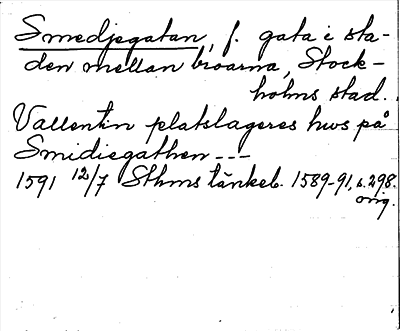 Smedjegatan, f. gata i sta-
den mellan broarna, Stock-
holms stad.
Vallentin platslageres hws på
Smidiegathen ---
1591 12/7 Sthms tänkeb. 1589-91, s. 298.
orig.